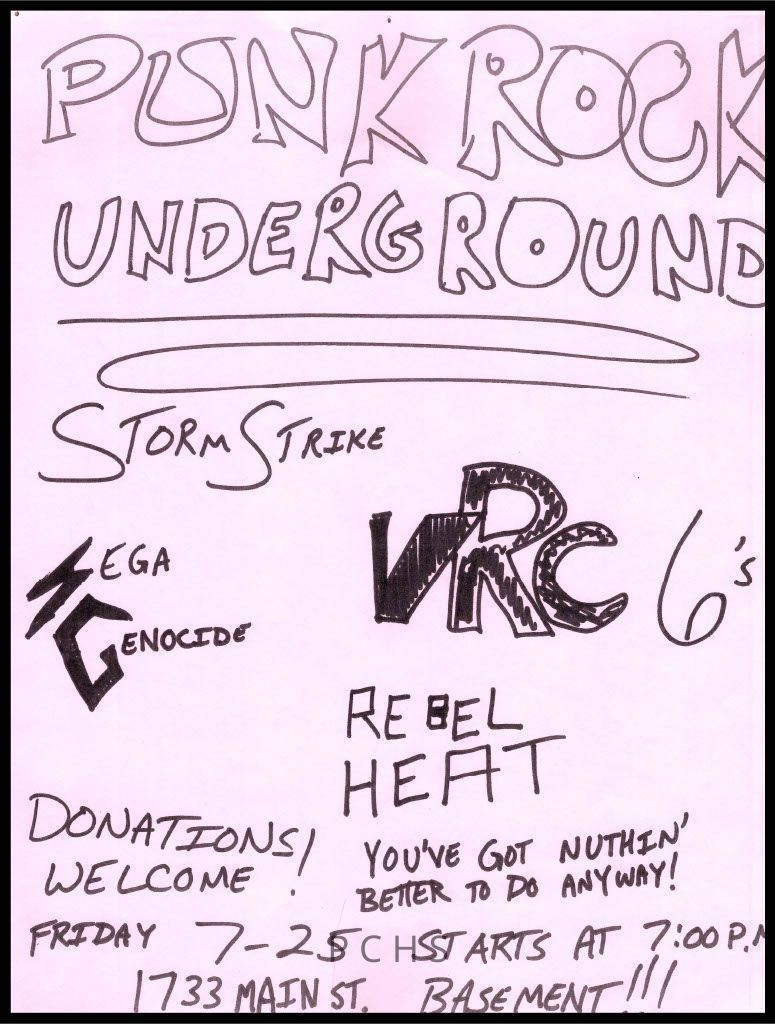 PUNK ROCK
UNDERGROUND
STORM STRIKE
VRC 6's
MEGA
GENOCIDE
REBEL
HEAT
DONATIONS!
WELCOME!
YOU'VE GOT NUTHIN'
BETTER TO DO ANYWAY!
FRIDAY 7-25 STARTS AT 7:00 P.M
PCHS
1733 MAIN ST. BASEMENT!!!